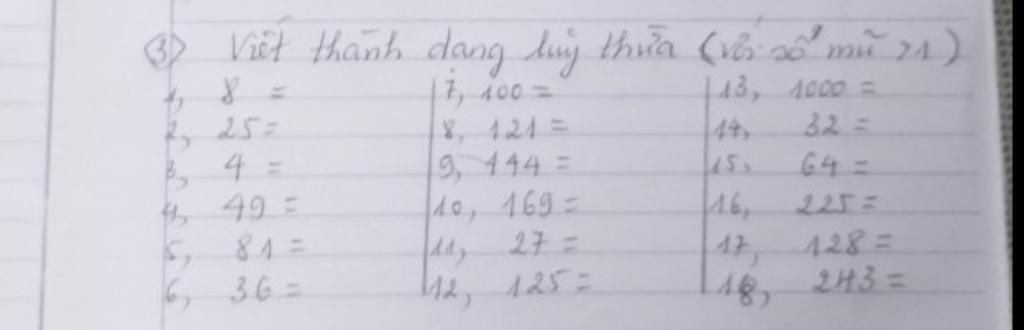 3) Viết thành dạng luỹ thừa (với số mũ >1)
1, 8 =
2, 25 =
3, 4 =
4, 49 =
5, 81 =
6, 36 =
7, 100 =
8, 121 =
9, 144 =
10, 169 =
11, 27 =
12, 125 =
13, 1000 =
14, 32 =
15, 64 =
16, 225 =
17, 128 =
18, 243 =